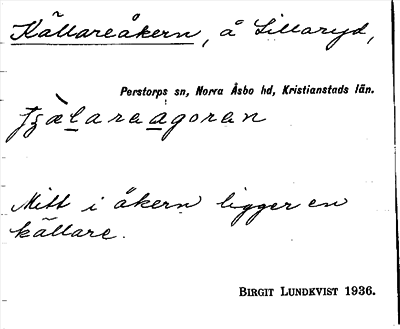 Källareåkern, å Lillaryd,
Perstorps sn, Norra Åsbo hd, Kristianstads län.
Mitt i åkern ligger en
källare.
BIRGIT LUNDKVIST 1936.